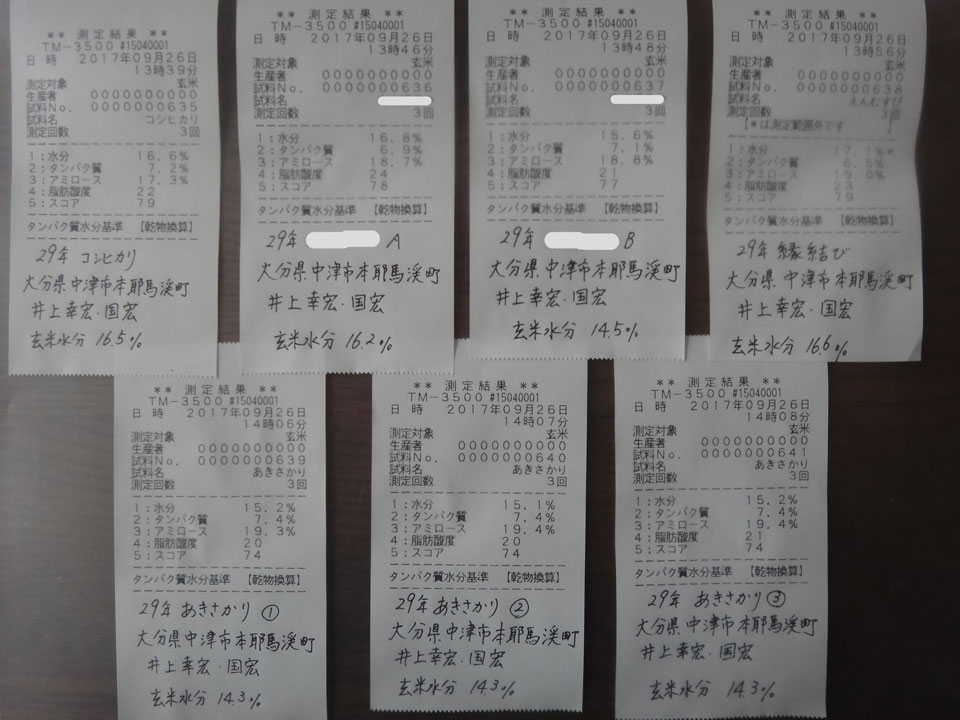 ** 測定結果 **
TM-3500 #15040001
日 時 2017年09月26日
13時39分
測定対象 玄米
生産者 0000000000
試料No. 0000000635
試料名 コシヒカリ
測定回数 3回
1:水分 16.6%
2:タンパク質 7.2%
3:アミロース 17.3%
4:脂肪酸度 22
5:スコア 79
タンパク質水分基準 【乾物換算】
29年 コシヒカリ
大分県中津市本耶馬渓町
井上幸宏・国宏
玄米水分 16.5%
** 測定結果 **
TM-3500 #15040001
日 時 2017年09月26日
13時46分
測定対象 玄米
生産者 0000000000
試料No. 0000000636
試料名
測定回数 3回
1:水分 16.8%
2:タンパク質 6.9%
3:アミロース 18.7%
4:脂肪酸度 24
5:スコア 78
タンパク質水分基準 【乾物換算】
29年 A
大分県中津市本耶馬渓町
井上幸宏・国宏
玄米水分 16.2%
** 測定結果 **
TM-3500 #15040001
日 時 2017年09月26日
13時48分
測定対象 玄米
生産者 0000000000
試料No. 0000000637
試料名
測定回数 3回
1:水分 15.6%
2:タンパク質 7.1%
3:アミロース 18.8%
4:脂肪酸度 21
5:スコア 77
タンパク質水分基準 【乾物換算】
29年 B
大分県中津市本耶馬渓町
井上幸宏・国宏
玄米水分 14.5%
** 測定結果 **
TM-3500 #15040001
日 時 2017年09月26日
13時56分
測定対象 玄米
生産者 0000000000
試料No. 0000000638
試料名 えんむすび
測定回数 3回
【*は測定範囲外です 】
1:水分 17.1%*
2:タンパク質 6.5%
3:アミロース 19.0%
4:脂肪酸度 23
5:スコア 79
タンパク質水分基準 【乾物換算】
29年 縁結び
大分県中津市本耶馬渓町
井上幸宏・国宏
玄米水分 16.6%
** 測定結果 **
TM-3500 #15040001
日 時 2017年09月26日
14時06分
測定対象 玄米
生産者 0000000000
試料No. 0000000639
試料名 あきさかり
測定回数 3回
1:水分 15.2%
2:タンパク質 7.4%
3:アミロース 19.3%
4:脂肪酸度 20
5:スコア 74
タンパク質水分基準 【乾物換算】
29年 あきさかり ①
大分県中津市本耶馬渓町
井上幸宏・国宏
玄米水分 14.3%
** 測定結果 **
TM-3500 #15040001
日 時 2017年09月26日
14時07分
測定対象 玄米
生産者 0000000000
試料No. 0000000640
試料名 あきさかり
測定回数 3回
1:水分 15.1%
2:タンパク質 7.4%
3:アミロース 19.4%
4:脂肪酸度 20
5:スコア 74
タンパク質水分基準 【乾物換算】
29年 あきさかり ②
大分県中津市本耶馬渓町
井上幸宏・国宏
玄米水分 14.3%
** 測定結果 **
TM-3500 #15040001
日 時 2017年09月26日
14時08分
測定対象 玄米
生産者 0000000000
試料No. 0000000641
試料名 あきさかり
測定回数 3回
1:水分 15.2%
2:タンパク質 7.4%
3:アミロース 19.4%
4:脂肪酸度 21
5:スコア 74
タンパク質水分基準 【乾物換算】
29年 あきさかり ③
大分県中津市本耶馬渓町
井上幸宏・国宏
玄米水分 14.3%